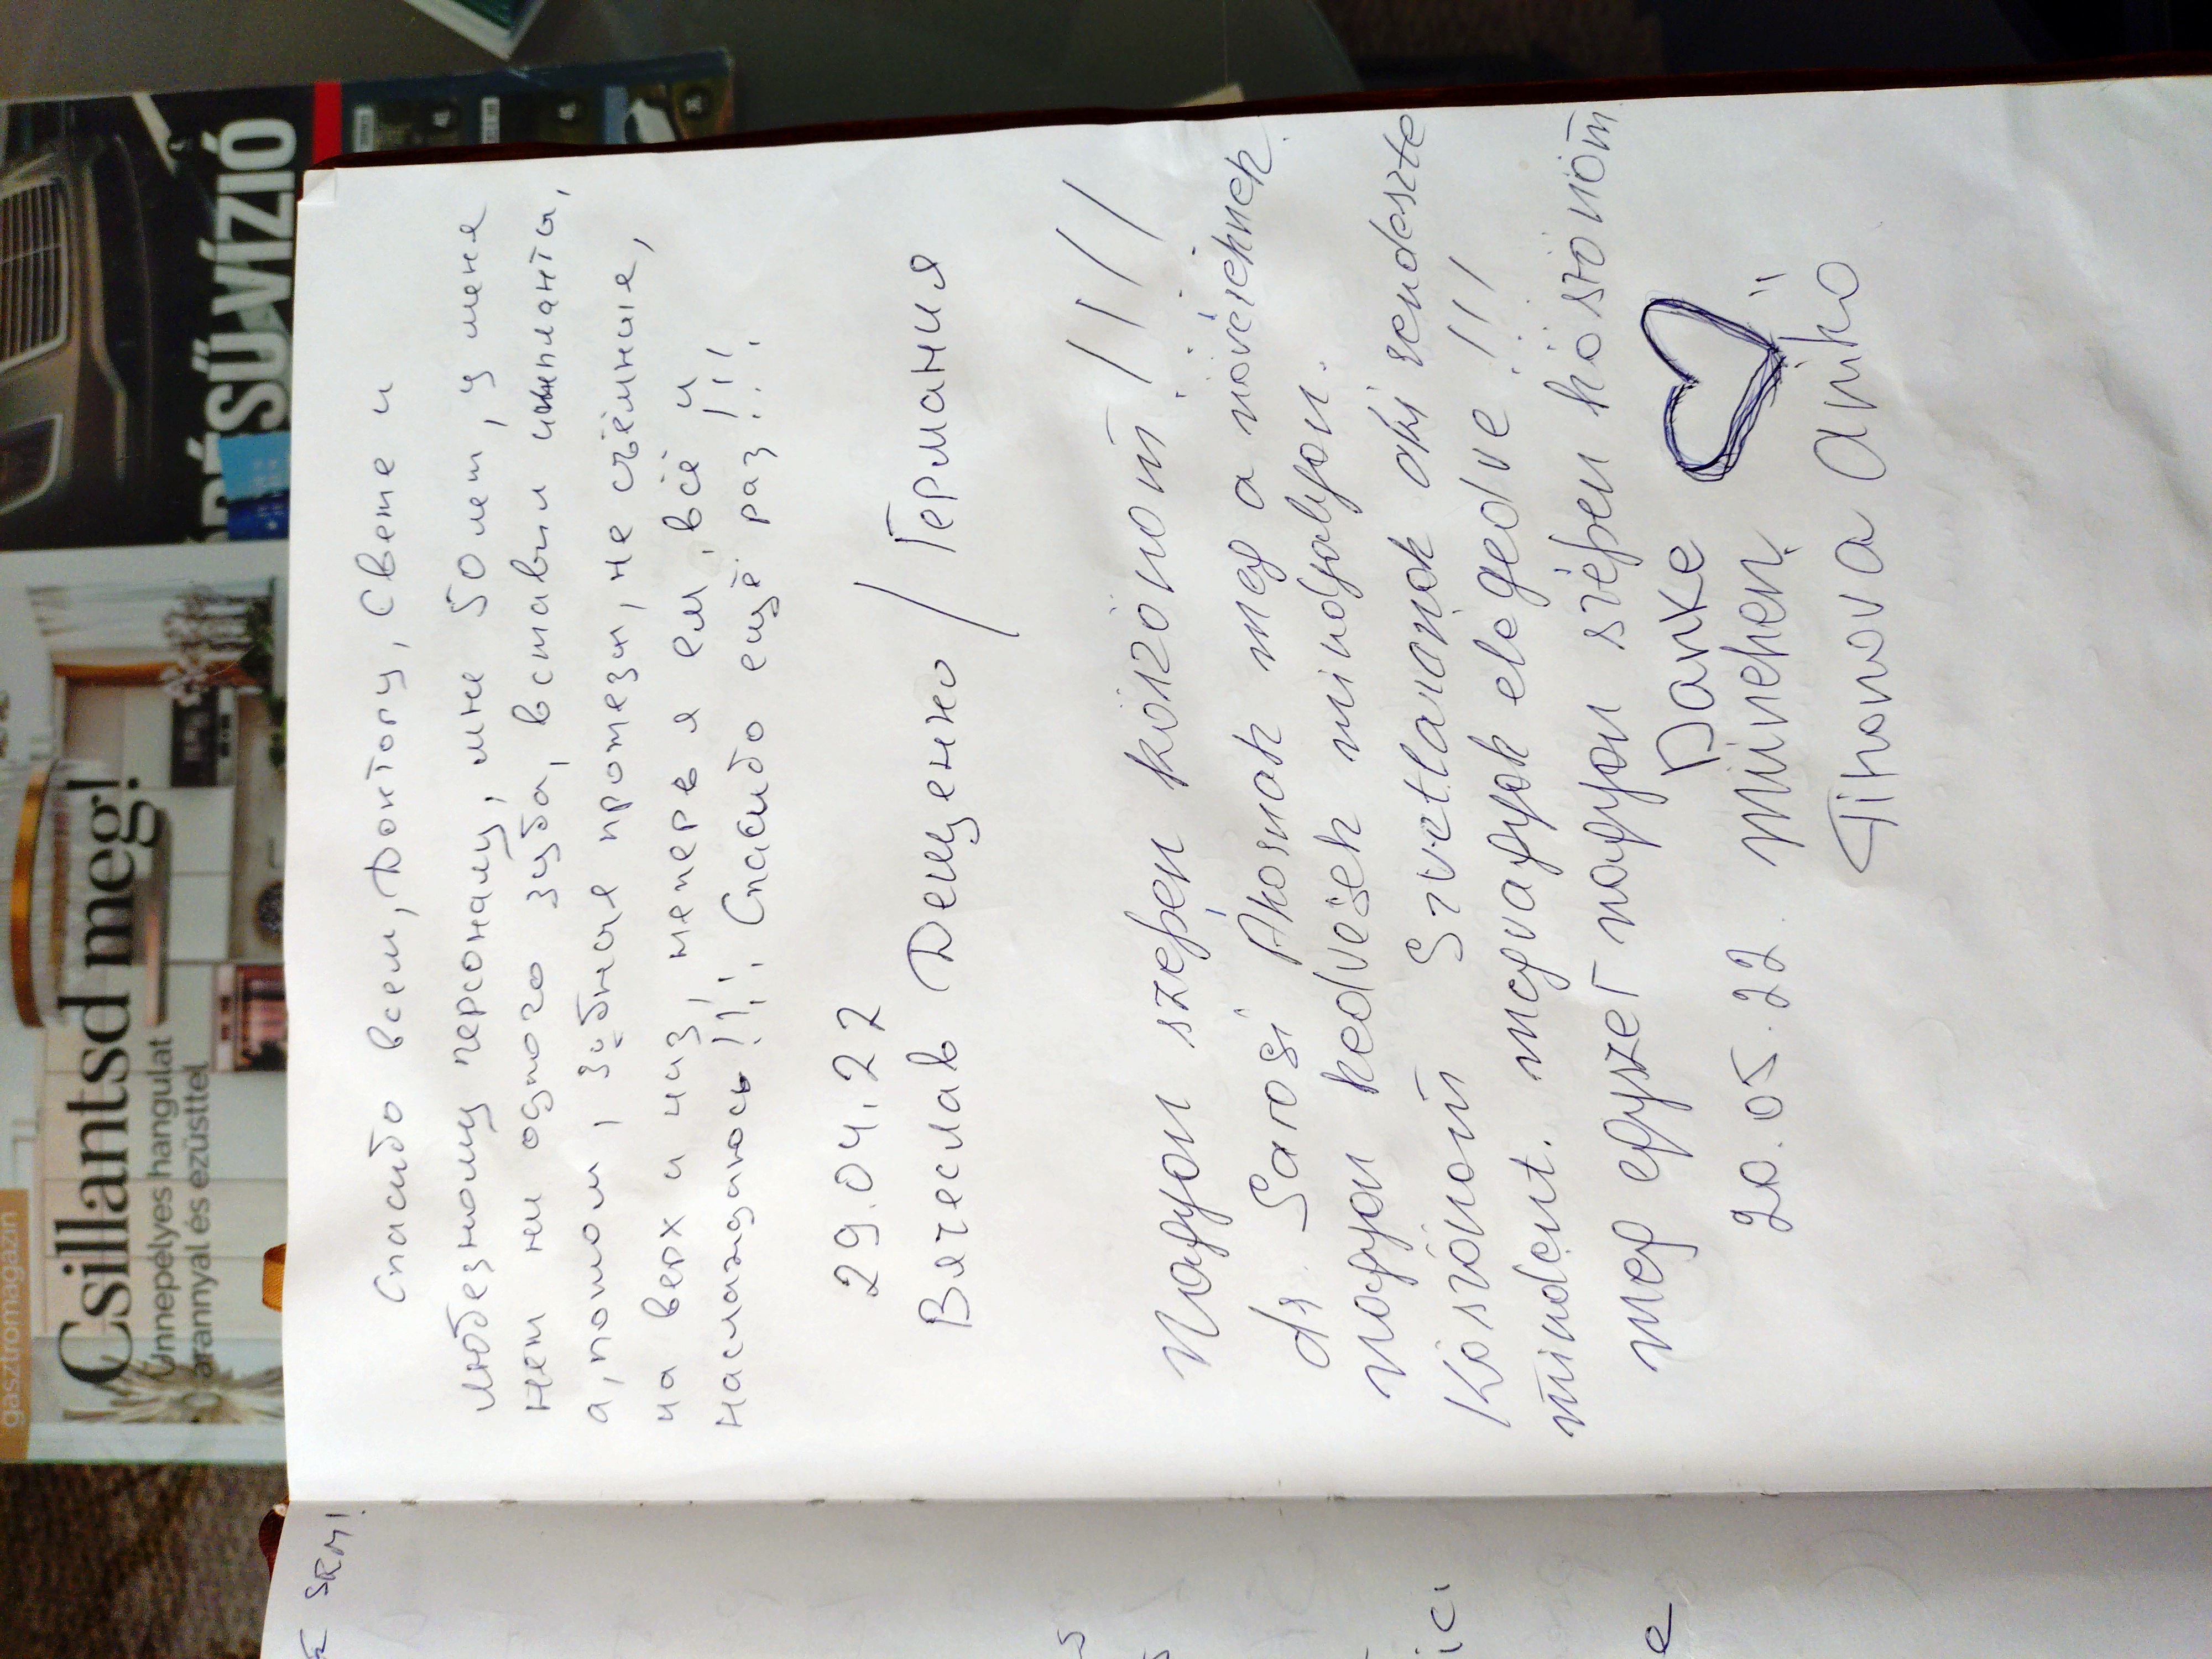 gasztromagazin
Csillantsd meg!
Ünnepélyes hangulat
arannyal és ezüsttel
SŰ VÍZIÓ
Спасибо всем, Доктору, Свете и
любезному персоналу, мне 50 лет, у меня
нет ни одного зуба, вставили импланты,
а, потом, зубные протезы, не съёмные,
на верх и низ, теперь я ем, всё и
наслаждаюсь!!! Спасибо ещё раз!!!
29.04.22
Вячеслав Дещенко / Германия
Nagyon szépen köszönöm!!!
dr. Sarosi Akosnak meg a növéreknek
nagyon kedvesek mindgalyon.
Köszönöm Szvetlananak aki rendeszte
mindent. megvagyok elegedve!!!
meg egyszer nagyon szépen köszönöm
Danke
20.05.22 münchen
Tihanova Aniko